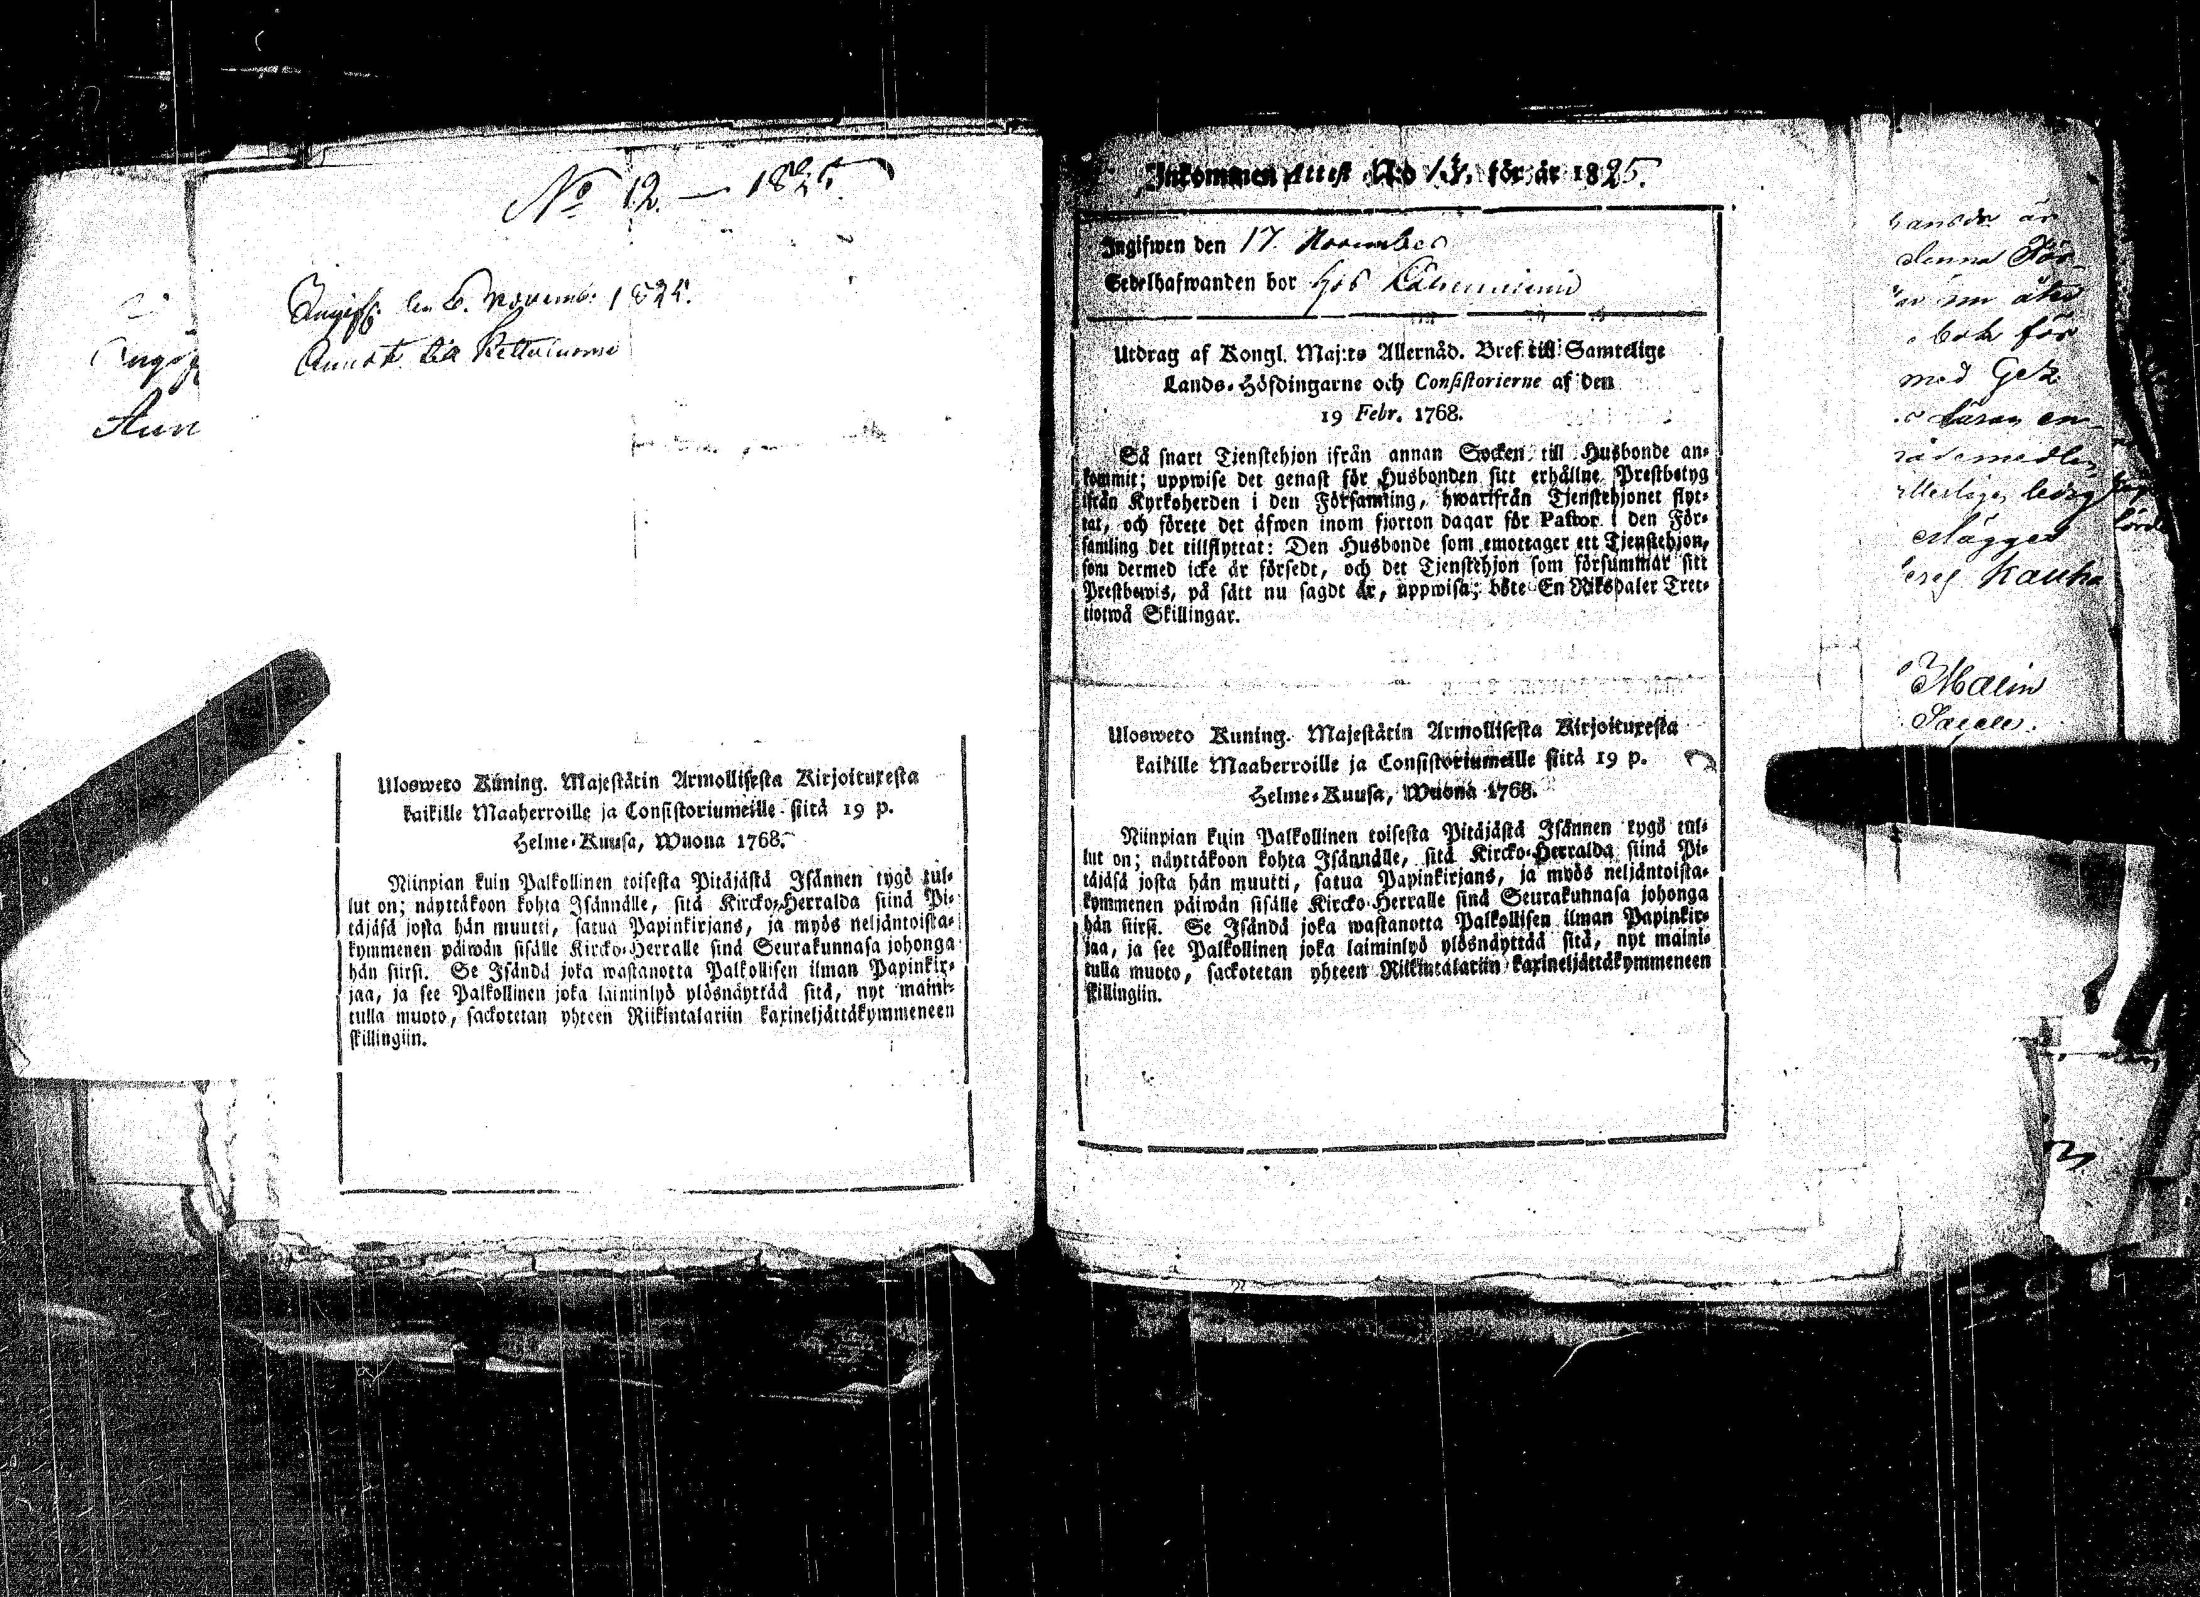 No 12. — 1825
den 6. Novemb. 1825.
Ulosweto Kuning. Majestätin Armollisesta Kirjoituxesta
kaikille Maaherroille ja Consistoriumeille siitä 19 p.
Helme-Kuusa, Wuona 1768.
Niinpian kuin Palkollinen toisesta Pitäjästä Isännen tygö tul-
lut on; näyttäkoon kohta Isännälle, sitä Kircko-Herralda siinä Pi-
täjäsä josta hän muutti, satua Papinkirjans, ja myös neljäntoista-
kymmenen päiwän sisälle Kircko-Herralle sinä Seurakunnasa johonga
hän siirsi. Se Isändä joka wastanotta Palkollisen ilman Papinkir-
jaa, ja see Palkollinen joka laiminlyö ylösnäyttää sitä, nyt maini-
tulla muoto, sackotetan yhteen Riikintalariin kaxineljättäkymmeneen
skillingiin.
Inkommen Attest N:o för år 1825.
Ingifwen den 17. November
Sedelhafwanden bor hos
Utdrag af Kongl. Maj:ts Allernåd. Bref till Samtelige
Lands-Höfdingarne och Consistorierne af den
19 Febr. 1768.
Så snart Tjenstehjon ifrån annan Socken till Husbonde an-
kommit; uppwise det genast för Husbonden sitt erhållne Prestbetyg
ifrån Kyrkoherden i den Församling, hwarifrån Tjenstehjonet flyt-
tat, och förete det äfwen inom fjorton dagar för Pastor i den För-
samling det tillflyttat: Den Husbonde som emottager ett Tjenstehjon,
som dermed icke är försedt, och det Tjenstehjon som försummar sitt
Prestbewis, på sätt nu sagdt är, uppwisa; böte En Riksdaler Tret-
tiotwå Skillingar.
Ulosweto Kuning. Majestätin Armollisesta Kirjoituxesta
kaikille Maaherroille ja Consistoriumeille siitä 19 p.
Helme-Kuusa, Wuona 1768.
Niinpian kuin Palkollinen toisesta Pitäjästä Isännen tygö tul-
lut on; näyttäkoon kohta Isännälle, sitä Kircko-Herralda siinä Pi-
täjäsä josta hän muutti, satua Papinkirjans, ja myös neljäntoista-
kymmenen päiwän sisälle Kircko-Herralle sinä Seurakunnasa johonga
hän siirsi. Se Isändä joka wastanotta Palkollisen ilman Papinkir-
jaa, ja see Palkollinen joka laiminlyö ylösnäyttää sitä, nyt maini-
tulla muoto, sackotetan yhteen Riikintalariin kaxineljättäkymmeneen
skillingiin.
är
denna För-
bok för
med
en-
Malin